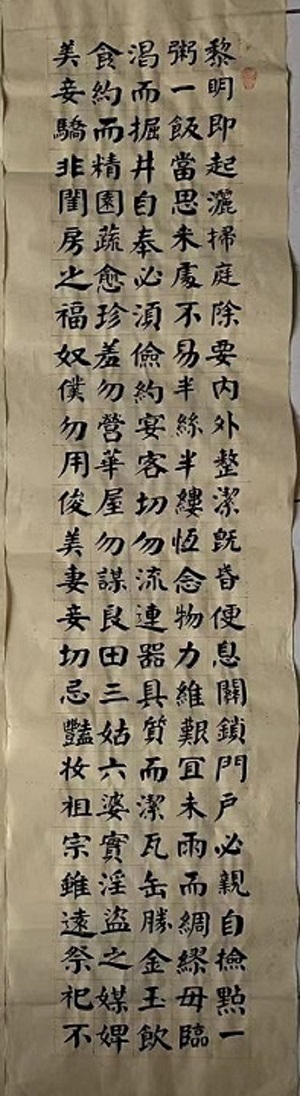 黎明即起灑掃庭除要內外整潔既昏便息關鎖門戶必親自檢點一
粥一飯當思来處不易半絲半縷恆念物力維艱宜未雨而綢繆毋臨
渴而掘井自奉必須儉約宴客切勿流連器具質而潔瓦缶勝金玉飲
食約而精園蔬愈珍羞勿營華屋勿謀良田三姑六婆實淫盜之媒婢
美妾驕非閨房之福奴僕勿用俊美妻妾切忌豔妝祖宗雖遠祭祀不